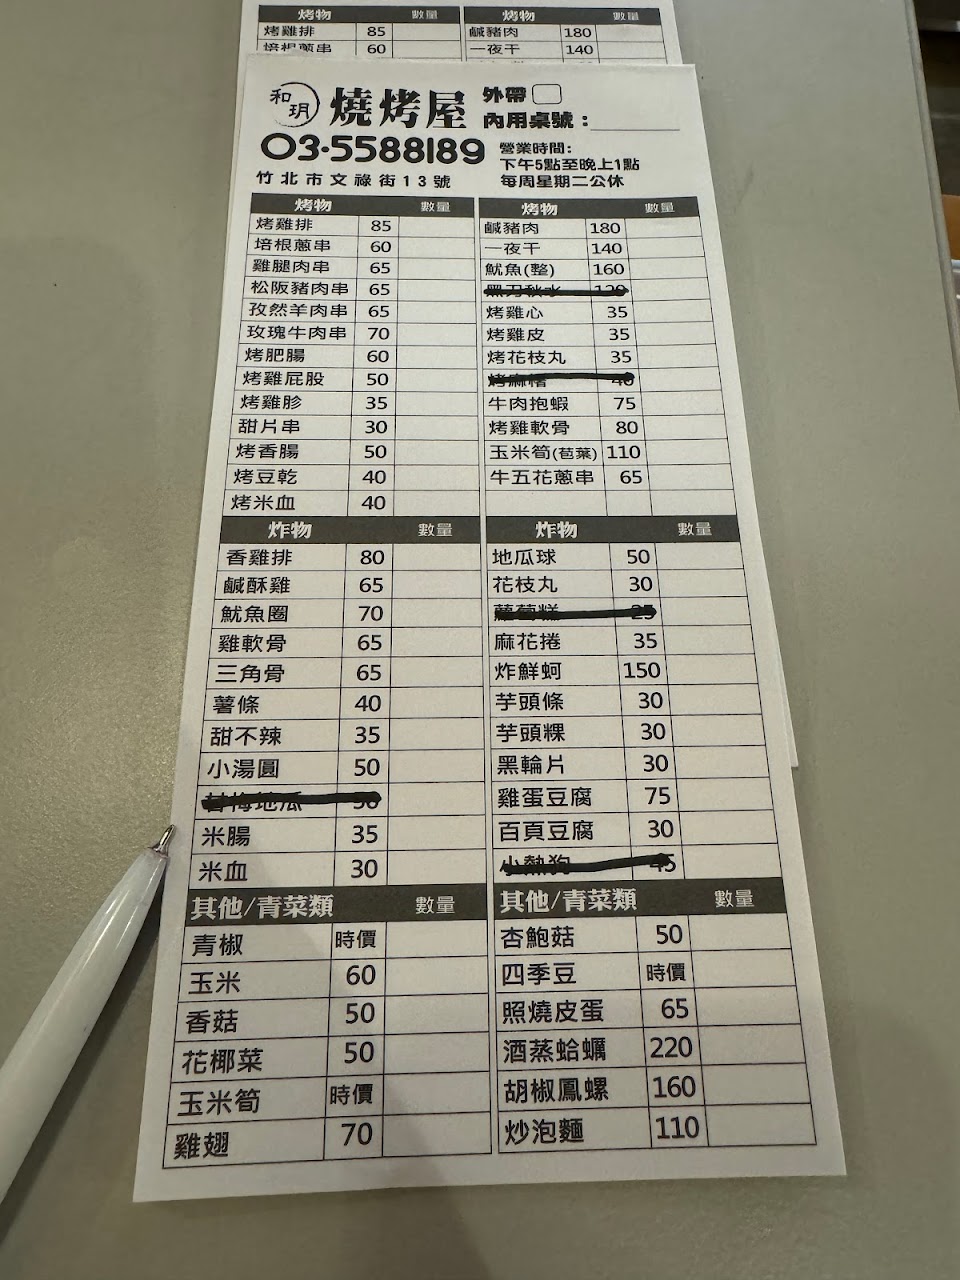 烤物 數量 烤物 數量
烤雞排 85 鹹豬肉 180
培根蔥串 60 一夜干 140
和玥 燒烤屋 外帶
內用桌號：
03-5588189
營業時間：
下午5點至晚上1點
竹北市文祿街13號 每周星期二公休
烤物 數量 烤物 數量
烤雞排 85 鹹豬肉 180
培根蔥串 60 一夜干 140
雞腿肉串 65 魷魚(整) 160
松阪豬肉串 65 黑刀秋水 120
孜然羊肉串 65 烤雞心 35
玫瑰牛肉串 70 烤雞皮 35
烤肥腸 60 烤花枝丸 35
烤雞屁股 50 烤麻糬 40
烤雞胗 35 牛肉抱蝦 75
甜片串 30 烤雞軟骨 80
烤香腸 50 玉米筍(苞葉) 110
烤豆乾 40 牛五花蔥串 65
烤米血 40
炸物 數量 炸物 數量
香雞排 80 地瓜球 50
鹹酥雞 65 花枝丸 30
魷魚圈 70 蘿蔔糕 25
雞軟骨 65 麻花捲 35
三角骨 65 炸鮮蚵 150
薯條 40 芋頭條 30
甜不辣 35 芋頭粿 30
小湯圓 50 黑輪片 30
甘梅地瓜 50 雞蛋豆腐 75
米腸 35 百頁豆腐 30
米血 30 小熱狗 45
其他/青菜類 數量 其他/青菜類 數量
青椒 時價 杏鮑菇 50
玉米 60 四季豆 時價
香菇 50 照燒皮蛋 65
花椰菜 50 酒蒸蛤蠣 220
玉米筍 時價 胡椒鳳螺 160
雞翅 70 炒泡麵 110